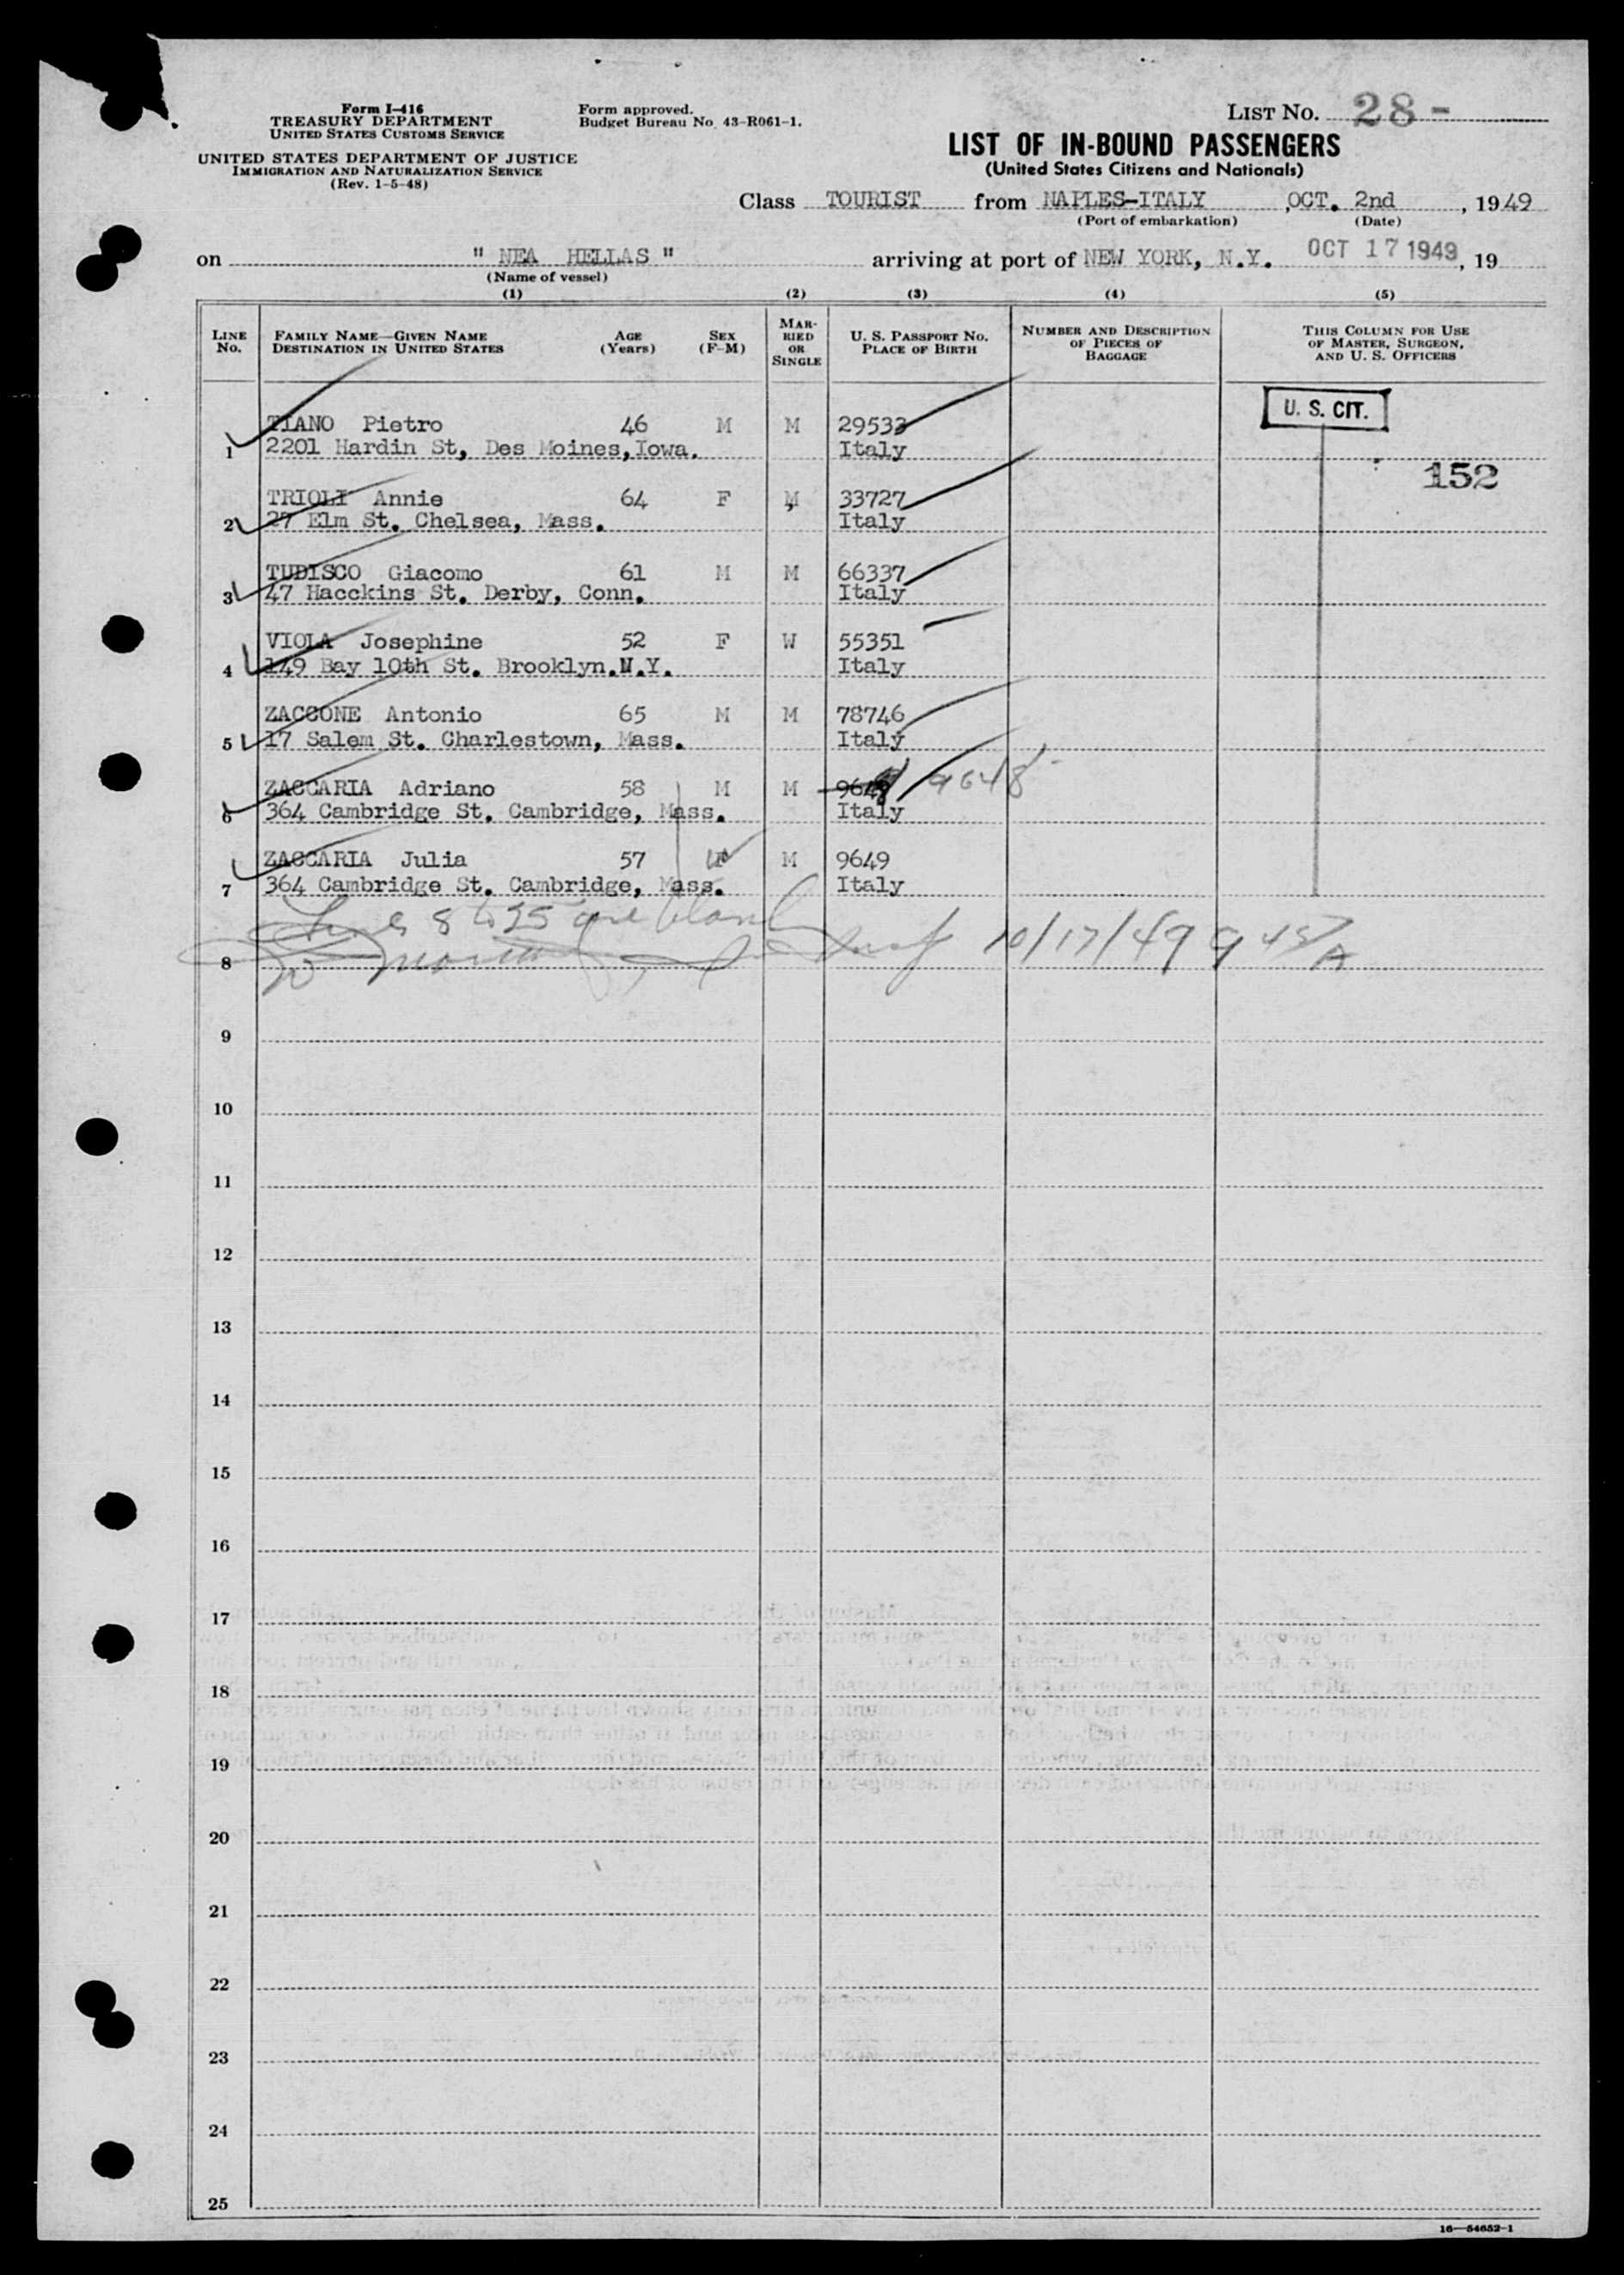 Form I-416
TREASURY DEPARTMENT
UNITED STATES CUSTOMS SERVICE
UNITED STATES DEPARTMENT OF JUSTICE
IMMIGRATION AND NATURALIZATION SERVICE
(Rev. 1-5-48)
Form approved.
Budget Bureau No. 43-R061-1.
LIST NO. 28-
LIST OF IN-BOUND PASSENGERS
(United States Citizens and Nationals)
Class TOURIST from NAPLES-ITALY, OCT. 2nd, 1949
(Port of embarkation) (Date)
on " NEA HELLAS " arriving at port of NEW YORK, N.Y. OCT 17 1949, 19
(Name of vessel)
(1) (2) (3) (4) (5)
LINE No. FAMILY NAME—GIVEN NAME DESTINATION IN UNITED STATES AGE (Years) SEX (F-M) MARRIED OR SINGLE U. S. PASSPORT NO. PLACE OF BIRTH NUMBER AND DESCRIPTION OF PIECES OF BAGGAGE THIS COLUMN FOR USE OF MASTER, SURGEON, AND U. S. OFFICERS
U. S. CIT.
TIANO Pietro 46 M M 29533
1 2201 Hardin St, Des Moines,Iowa. Italy
152
TRIOLI Annie 64 F M 33727
2 27 Elm St. Chelsea, Mass. Italy
TUDISCO Giacomo 61 M M 66337
3 47 Hacckins St. Derby, Conn. Italy
VIOLA Josephine 52 F W 55351
4 149 Bay 10th St. Brooklyn.N.Y. Italy
ZACCONE Antonio 65 M M 78746
5 17 Salem St. Charlestown, Mass. Italy
ZACCARIA Adriano 58 M M 9648
6 364 Cambridge St. Cambridge, Mass. Italy
ZACCARIA Julia 57 F M 9649
7 364 Cambridge St. Cambridge, Mass. Italy
Lines 8 to 25 are blank
8 10/17/49 9 45/A
9
10
11
12
13
14
15
16
17
18
19
20
21
22
23
24
25
16—54652-1